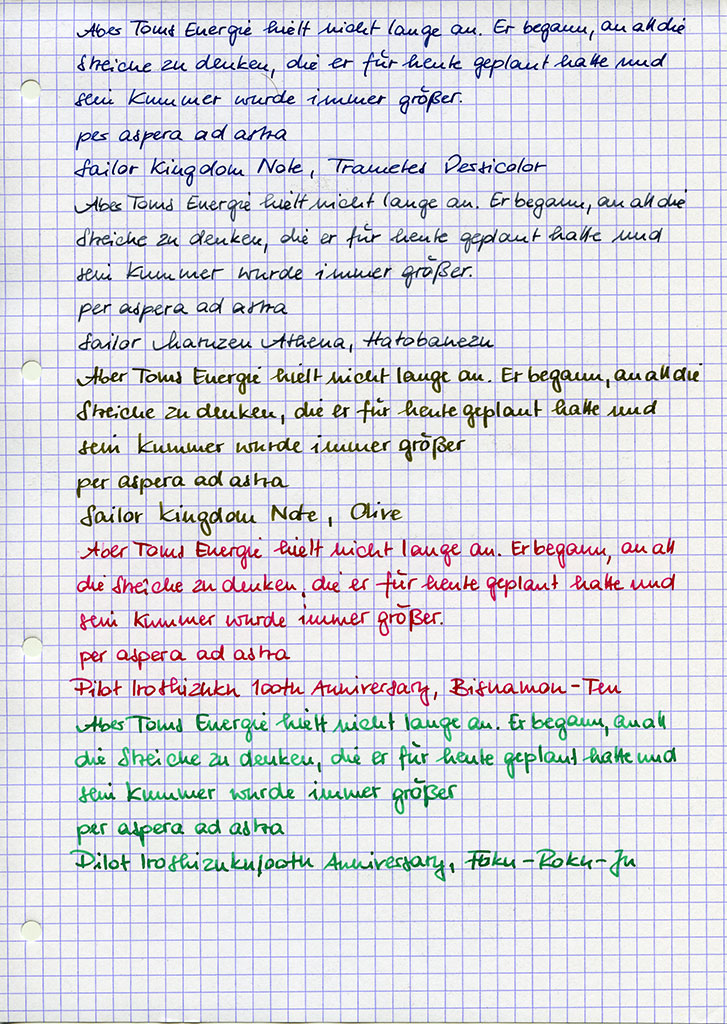 Aber Toms Energie hielt nicht lange an. Er begann, an all die
Streiche zu denken, die er für heute geplant hatte und
sein Kummer wurde immer größer.
per aspera ad astra
Sailor Kingdom Note, Trametes Versicolor
Aber Toms Energie hielt nicht lange an. Er begann, an all die
Streiche zu denken, die er für heute geplant hatte und
sein Kummer wurde immer größer.
per aspera ad astra
Sailor Maruzen Athena, Hatobanezu
Aber Toms Energie hielt nicht lange an. Er begann, an all die
Streiche zu denken, die er für heute geplant hatte und
sein Kummer wurde immer größer
per aspera ad astra
Sailor Kingdom Note, Olive
Aber Toms Energie hielt nicht lange an. Er begann, an all
die Streiche zu denken, die er für heute geplant hatte und
sein Kummer wurde immer größer.
per aspera ad astra
Pilot Iroshizuku 100th Anniversary, Bishamon-Ten
Aber Toms Energie hielt nicht lange an. Er begann, an all
die Streiche zu denken, die er für heute geplant hatte und
sein Kummer wurde immer größer
per aspera ad astra
Pilot Iroshizuku 100th Anniversary, Fuku-Roku-Ju